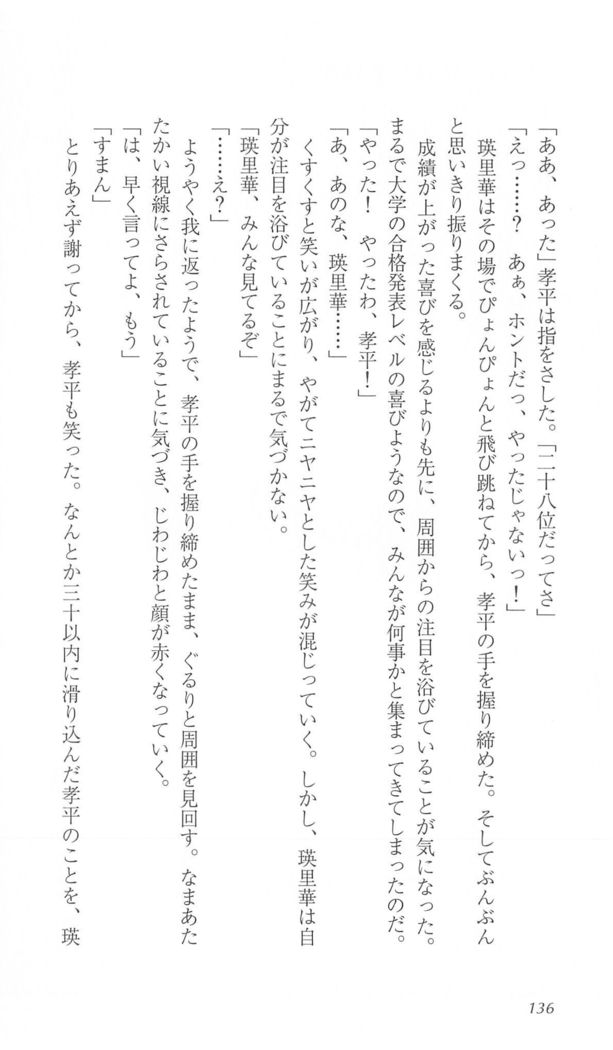 「ああ、あった」孝平は指をさした。「二十八位だってさ」
「えっ……？　あぁ、ホントだっ、やったじゃないっ！」
　瑛里華はその場でぴょんぴょんと飛び跳ねてから、孝平の手を握り締めた。そしてぶんぶん
と思いきり振りまくる。
　成績が上がった喜びを感じるよりも先に、周囲からの注目を浴びていることが気になった。
まるで大学の合格発表レベルの喜びようなので、みんなが何事かと集まってきてしまったのだ。
「やった！　やったわ、孝平！」
「あ、あのな、瑛里華……」
　くすくすと笑いが広がり、やがてニヤニヤとした笑みが混じっていく。しかし、瑛里華は自
分が注目を浴びていることにまるで気づかない。
「瑛里華、みんな見てるぞ」
「……え？」
　ようやく我に返ったようで、孝平の手を握り締めたまま、ぐるりと周囲を見回す。なまあた
たかい視線にさらされていることに気づき、じわじわと顔が赤くなっていく。
「は、早く言ってよ、もう」
「すまん」
　とりあえず謝ってから、孝平も笑った。なんとか三十以内に滑り込んだ孝平のことを、瑛
136